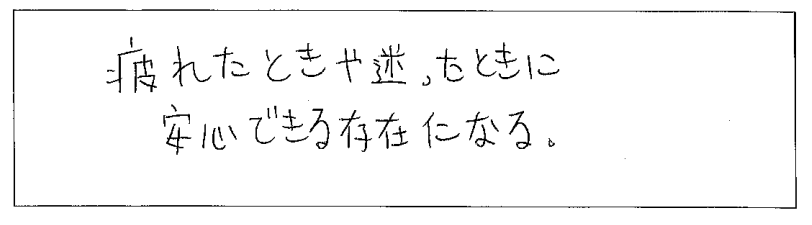 疲れたときや迷ったときに
安心できる存在になる。